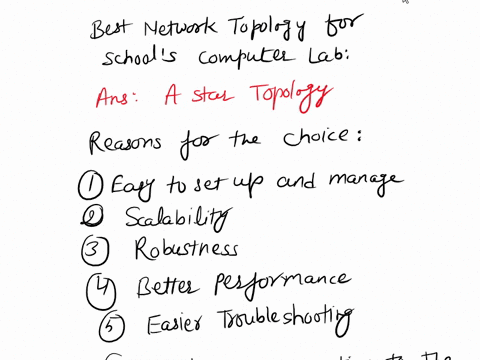 Best Network Topology for
school's Computer Lab:
Ans: A star Topology
Reasons for the choice:
1 Easy to set up and manage
2 Scalability
3 Robustness
4 Better Performance
5 Easier Troubleshooting